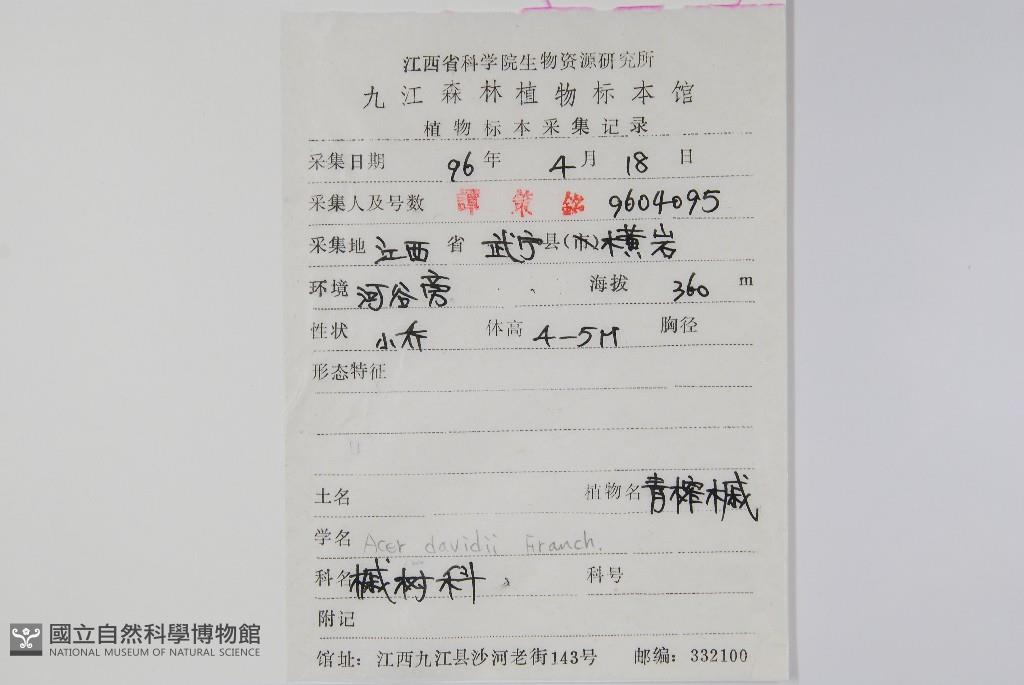 江西省科学院生物资源研究所
九江森林植物标本馆
植物标本采集记录
采集日期 96年 4月 18日
采集人及号数 譚策銘 9604095
采集地 江西省 武宁县(市)横岩
环境 河谷旁 海拔 360 m
性状 小乔 体高 4-5M 胸径
形态特征
土名 植物名 青榨槭
学名 Acer davidii Franch.
科名 槭树科 科号
附记
馆址：江西九江县沙河老街143号 邮编：332100
國立自然科學博物館
NATIONAL MUSEUM OF NATURAL SCIENCE